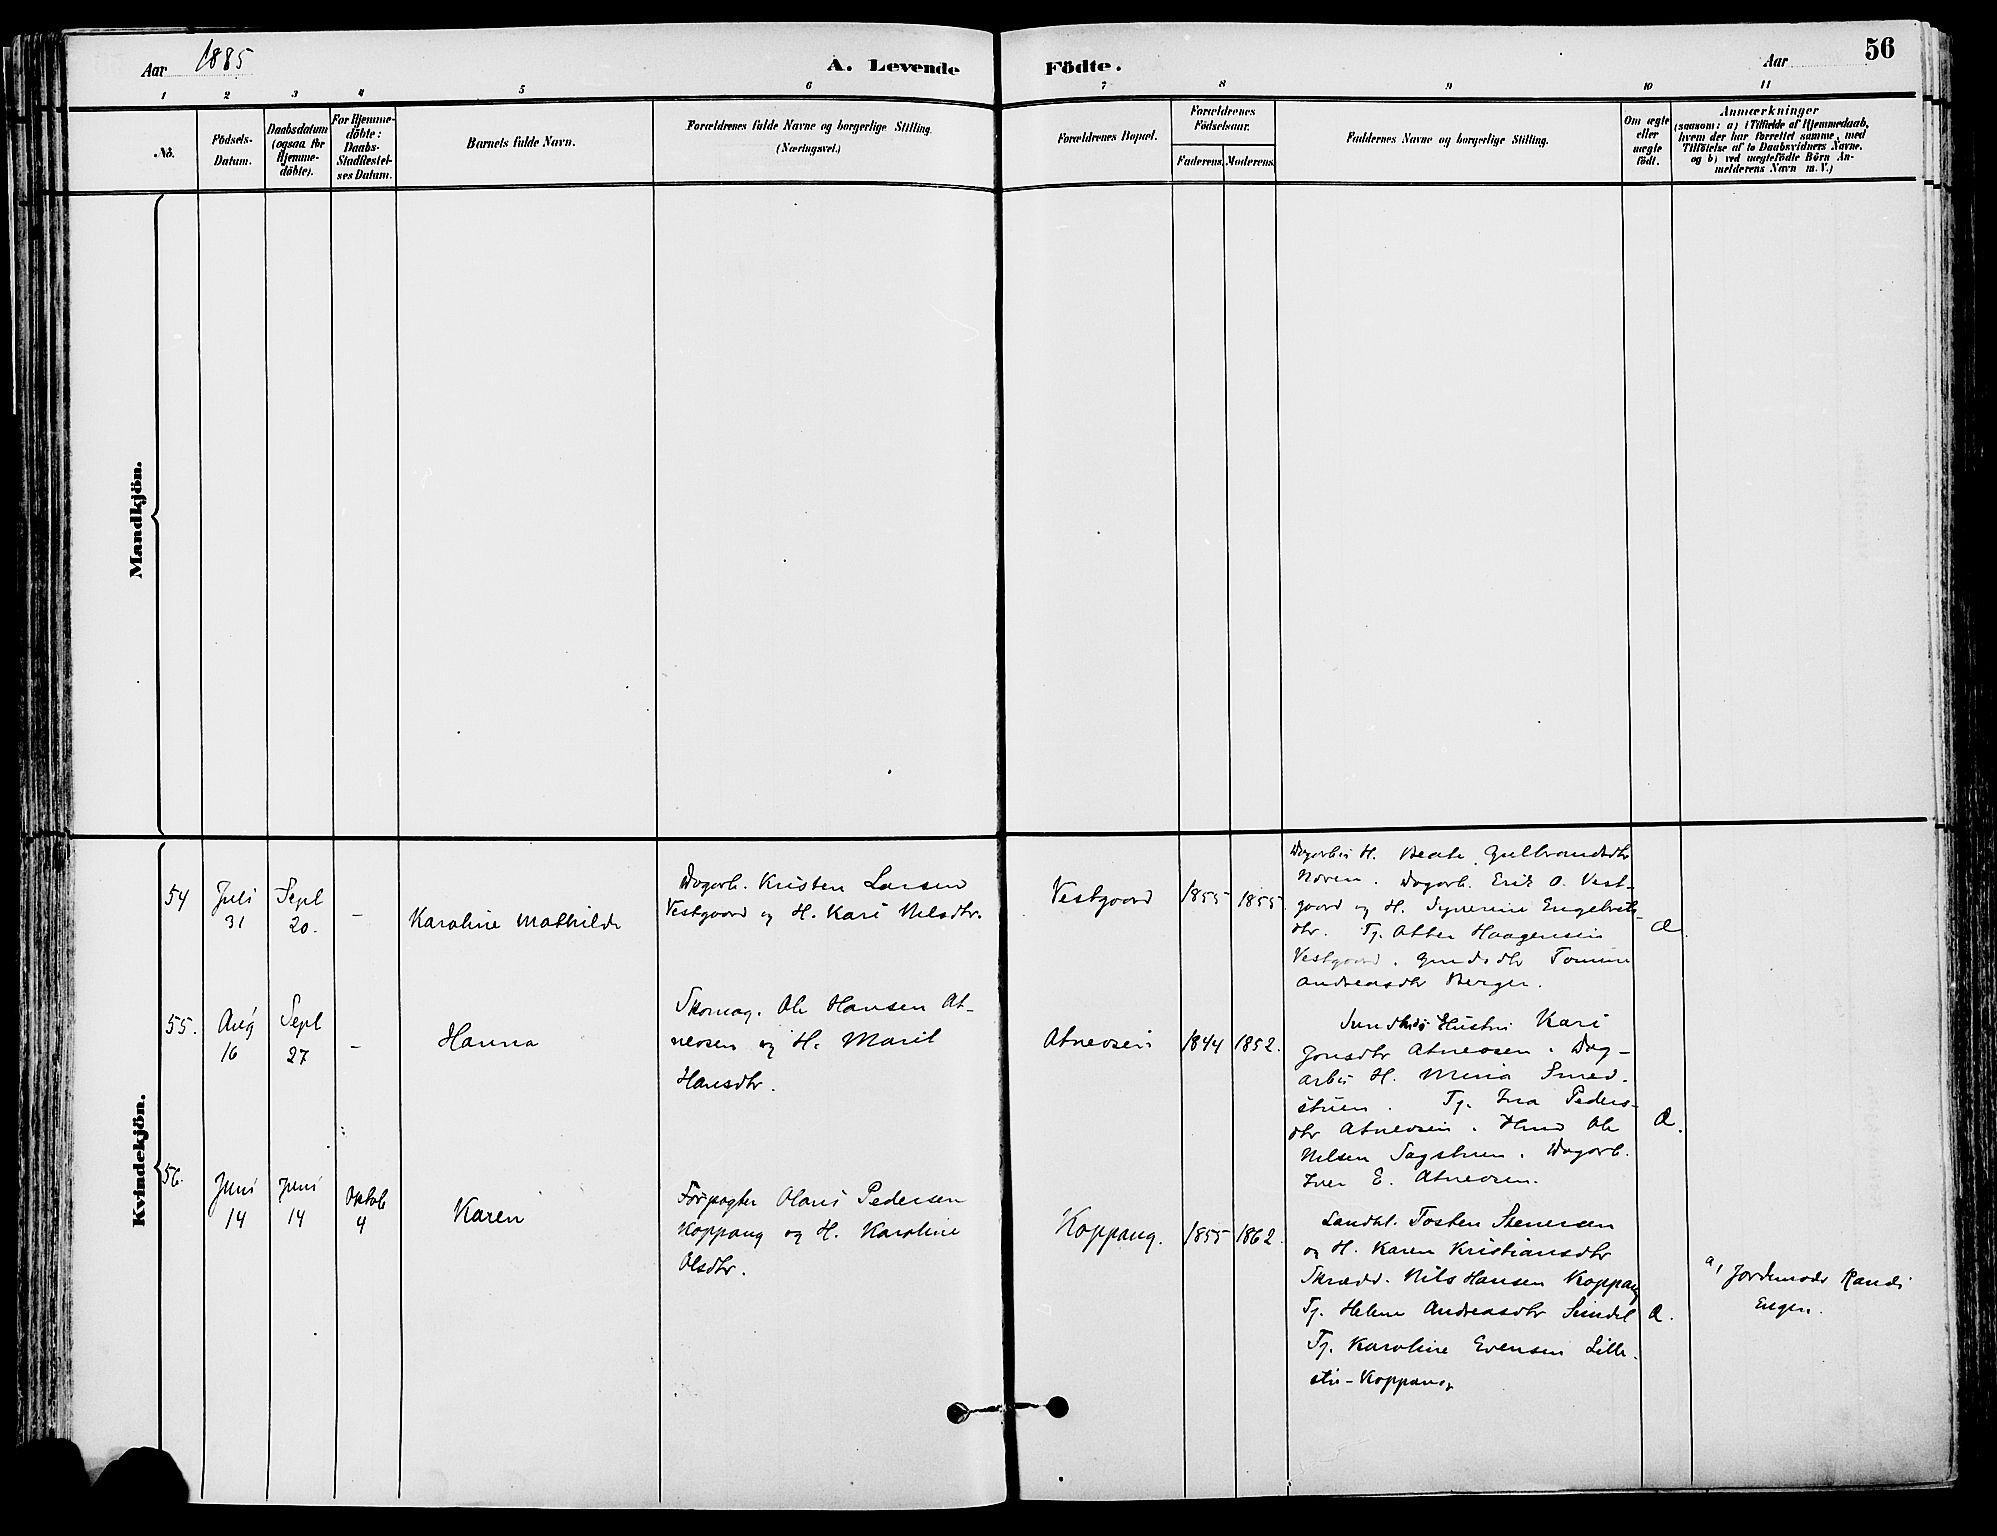 Aar 1885
A. Levende Födte.
Aar
56
1 2 3 4 5 6 7 8 9 10 11
No.
Födsels-
Datum.
Daabsdatum
(ogsaa for
Hjemme-
döbte).
For Hjemme-
döbte:
Daabs-
Stadfæstel-
ses Datum.
Barnets fulde Navn.
Forældrenes fulde Navne og borgerlige Stilling.
(Næringsvei.)
Forældrenes Bopæl.
Forældrenes
Födselsaar.
Faderens. Moderens.
Faddernes Navne og borgerlige Stilling.
Om ægte
eller
uægte
födt.
Anmærkninger
(saasom: a) i Tilfælde af Hjemmedaab,
hvem der har forrettet samme, med
Tilföielse af to Daabsvidners Navne.
og b) ved uægtefödte Börn An-
melderens Navn m. V.)
Mandkjön.
Kvindekjön.
54
Juli
31
Sept
20.
-
Karoline Mathilde
Dagarb. Kristen Larsen
Vestgaard og H. Kari Nilsdtr.
Vestgaard
1855
1855.
Dagarbs H. Beate Gulbrandsdtr
Noren. Dagarb. Erik O. Vest-
gaard og H. Syverine Engebrets-
dtr. Tj. Otter Haagensen
Vestgaard. Gmdsdtr
Andreasdtr Berger.
Æ.
55.
Aug
16
Sept
27
-
Hanna
Skomag. Ole Hansen At-
neosen og H. Marit
Hansdtr.
Atneosen
1844
1852.
Hustru Kari
Jonsdtr Atneosen. Dag-
arbs H. Smed-
stuen. Tj. Ina Peders-
dtr Atneosen. Ole
Nilsen Sagstuen. Dagarb.
Iver E. Atneosen.
Æ.
56.
Juni
14
Juni
14
Oktob
4
Karen
Forpagter Olaus Pedersen
Koppang og H. Karoline
Olsdtr.
Koppang.
1855
1862.
Landhl. Tosten Stenersen
og H. Karen Kristiansdtr
Skrædd. Nils Hansen Koppang
Tj. Helene Andreasdtr
Tj. Karoline Evensen Lille-
stu-Koppang
Æ.
a, Jordemoder Randi
Engen.